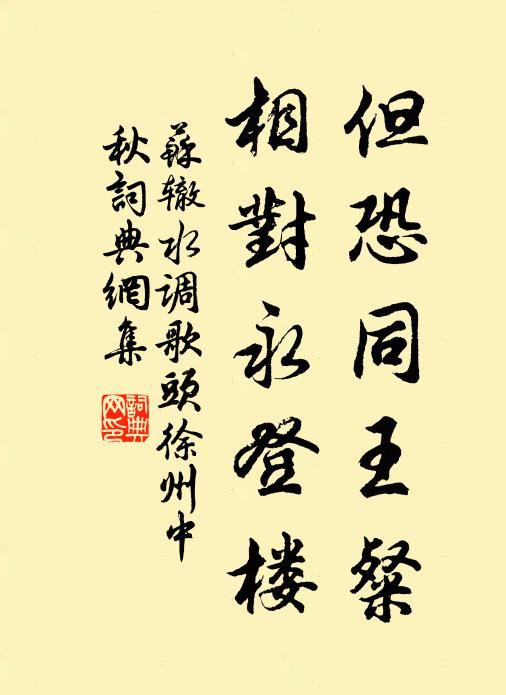 但恐同王粲
相對永登楼
蘇辙水调歌頭徐州中
秋詞典網集
詞典
网印